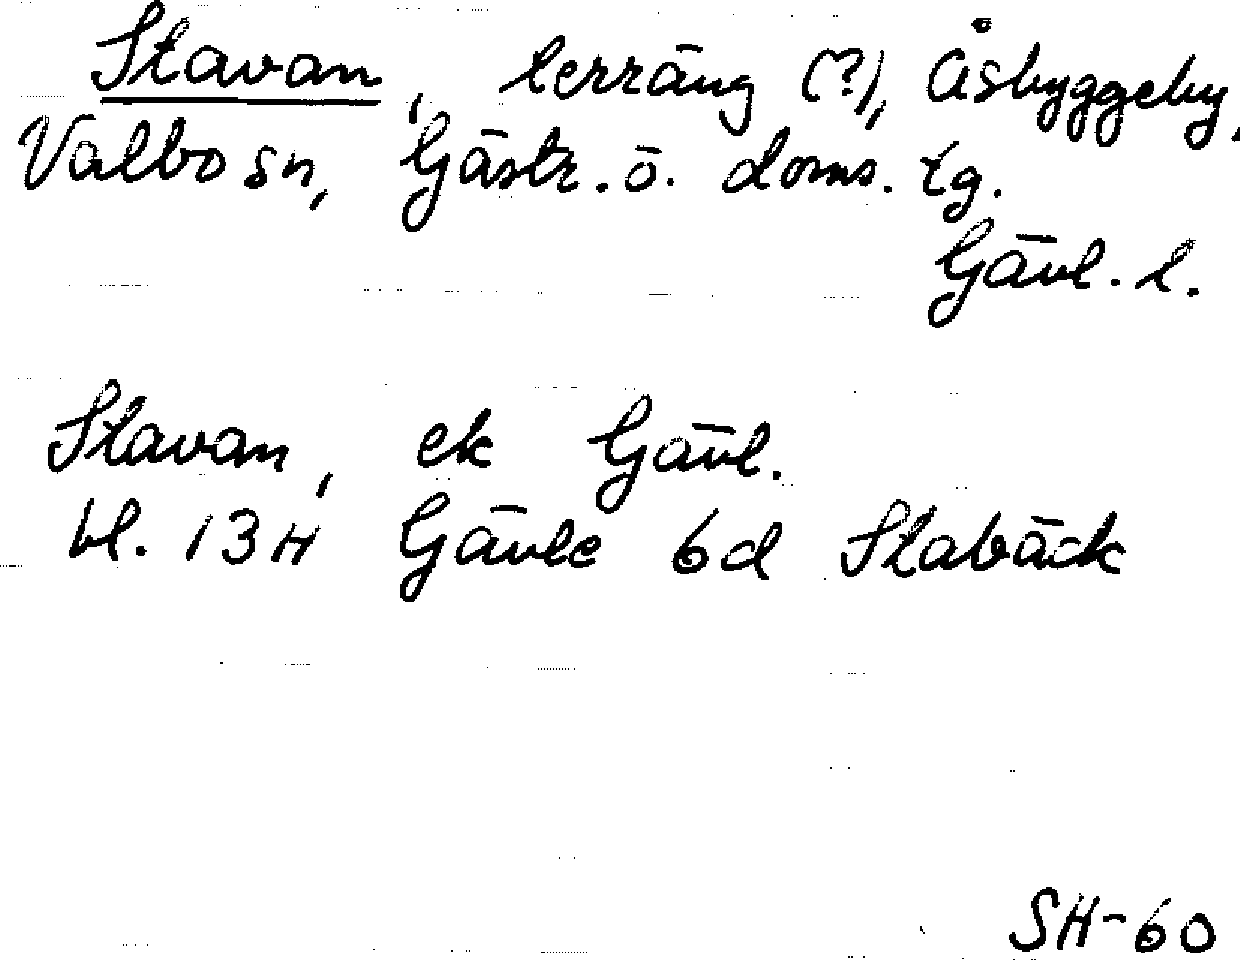 Stavan, terräng (?), Åsbyggeby,
Valbo sn, Gästr. ö. doms. tg.
Gävl. l.
Stavan, ek Gävl.
bl. 13H Gävle 6d Stabäck
SH-60